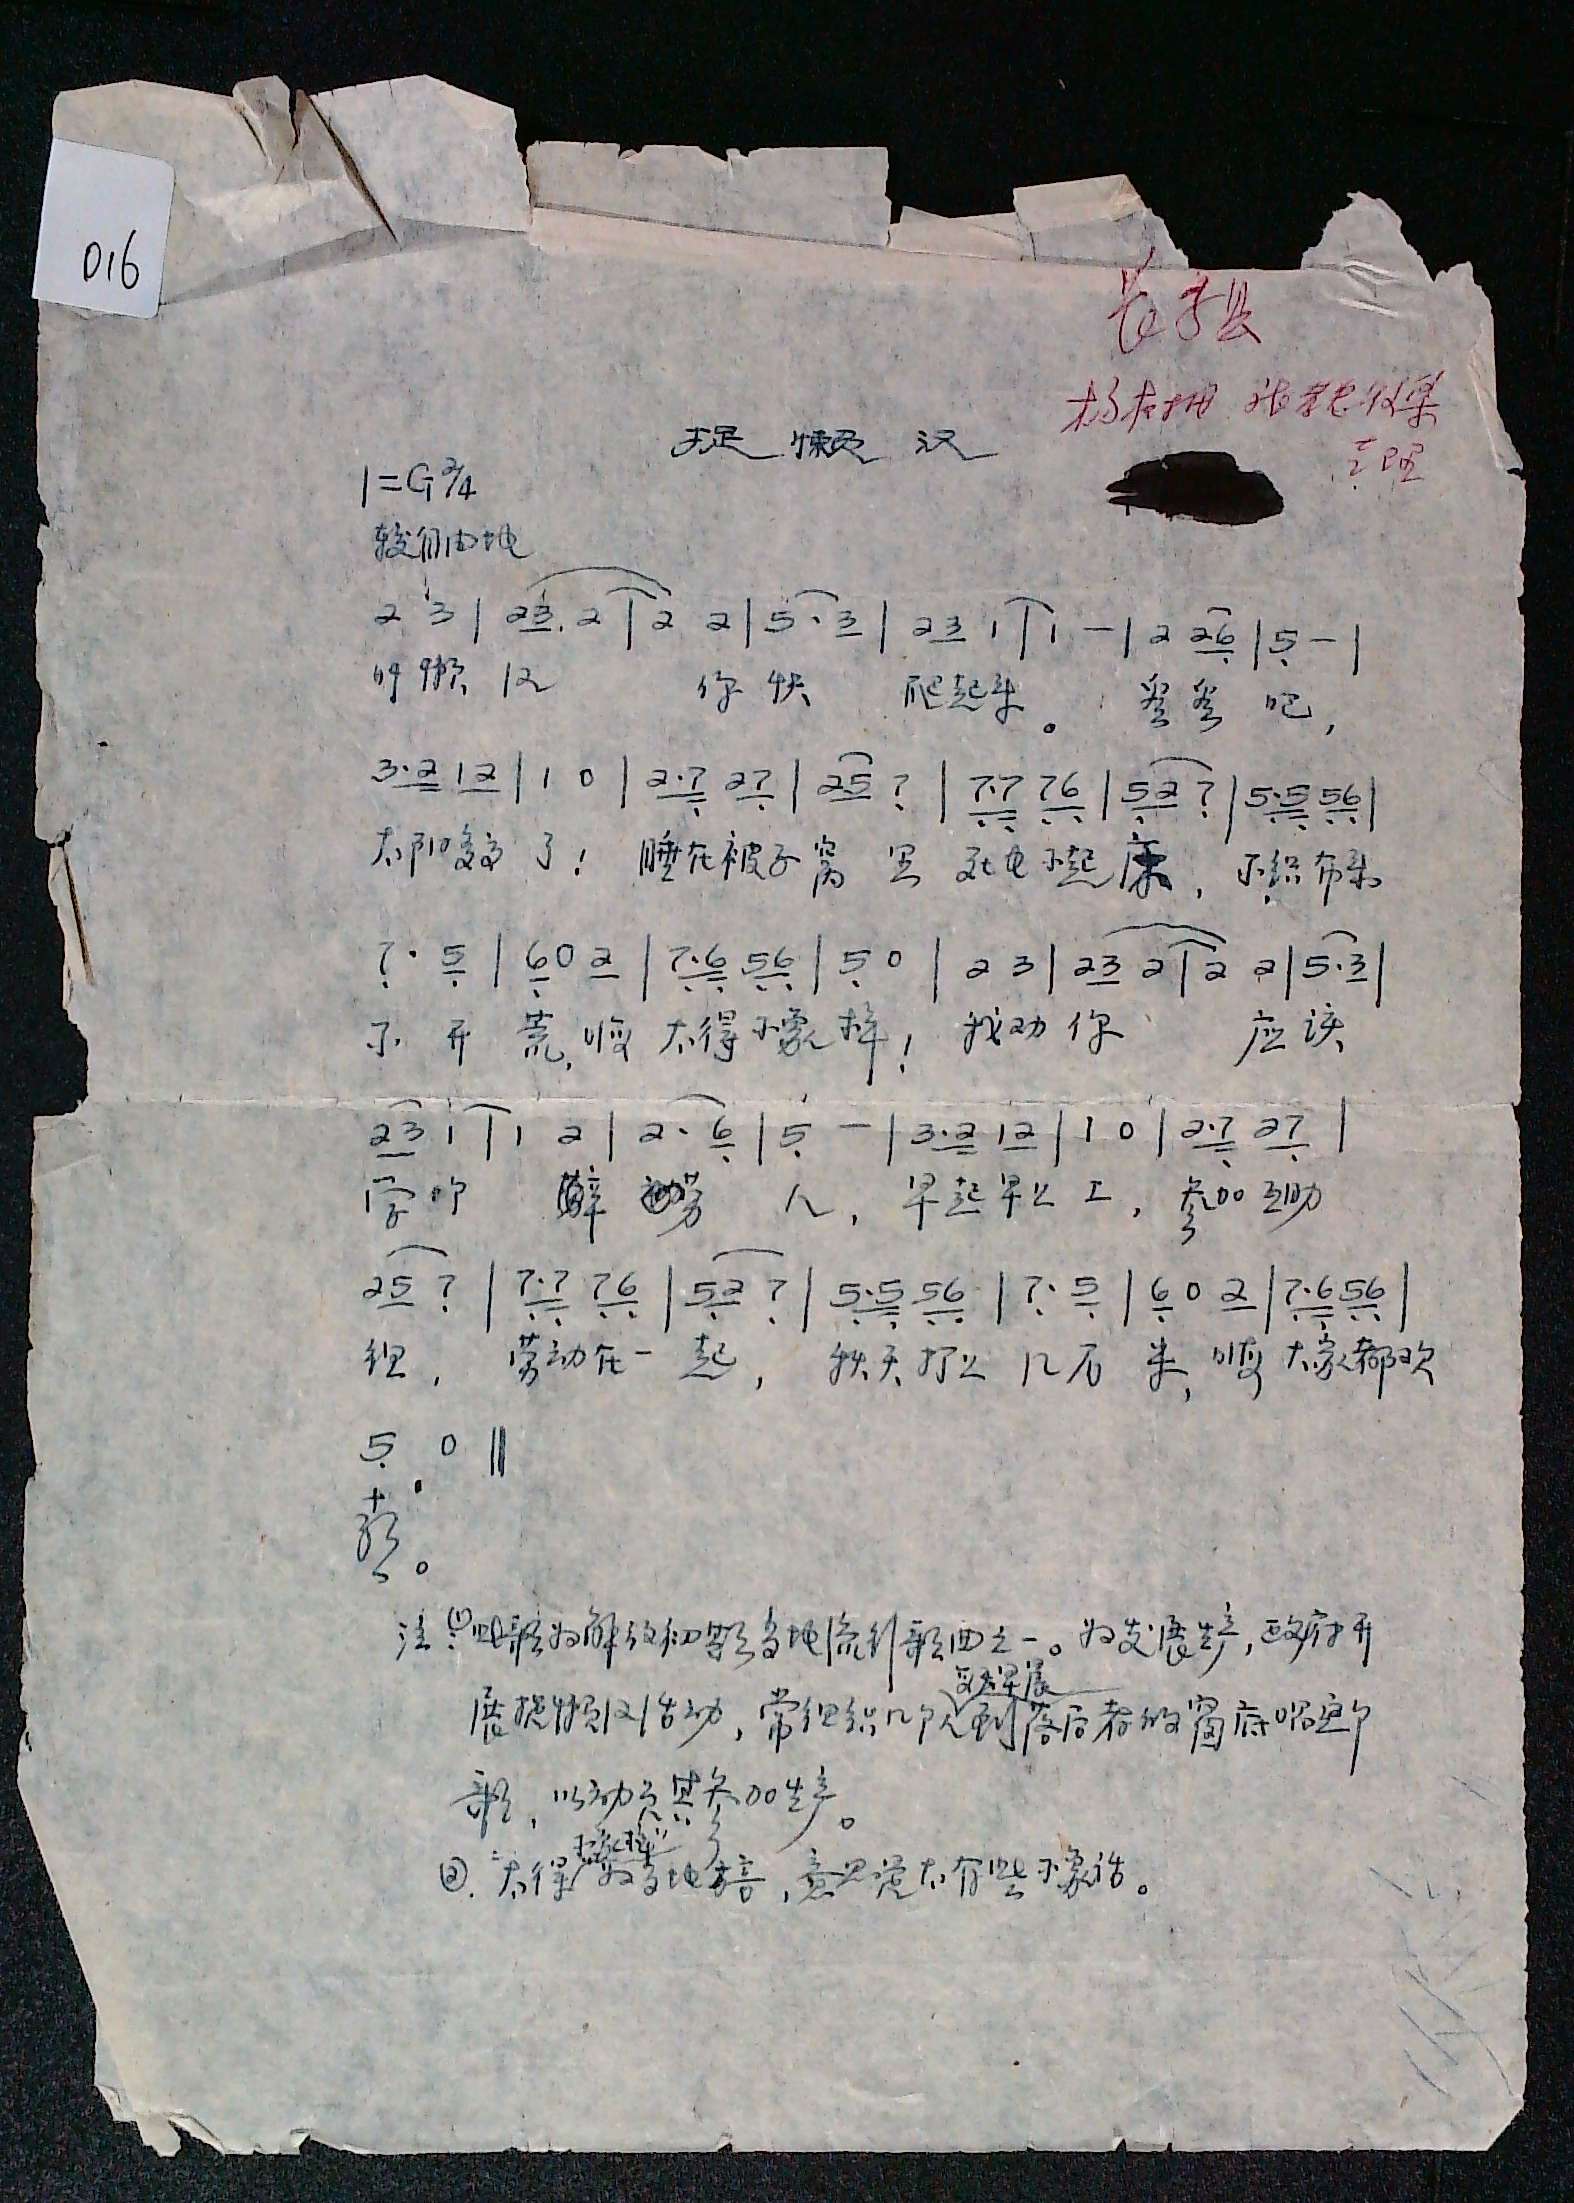 016
长子县
收集
整理
捉懒汉
1=G 2/4
较自由地
2 3 | 23. 2 | 2 2 | 5· 3 | 23 1 | 1 - | 2 26 | 5 - |
叫懒汉 你快 爬起来。 登登吧,
3·2 12 | 1 0 | 2·7 27 | 25 7 | 7·7 76 | 52 7 | 5·5 56 |
太阳多高了! 睡在被子窝里 死也不起床, 不织布来
7· 5 | 60 2 | 7·6 56 | 5 0 | 2 3 | 23 2 | 2 2 | 5·3 |
不开荒, 嗳太得不象样! 我劝你 应该
23 1 | 1 2 | 2· 6 | 5 - | 3·2 12 | 1 0 | 2·7 27 |
学那 勤劳人, 早起早上工, 参加互助
25 7 | 7·7 76 | 52 7 | 5·5 56 | 7· 5 | 6 0 2 | 7·6 56 |
组, 劳动在一起, 秋天打上几石米, 嗳大家都欢
5 0 ‖
喜。
注:①此歌为解放初期当地流行歌曲之一。为发展生产,政府开
展捉懒汉活动,常组织几队到落后者的窗府唱这个
歌,以动员其参加生产。
②. "太得不象样"为当地方言,意思是太有些不象话。